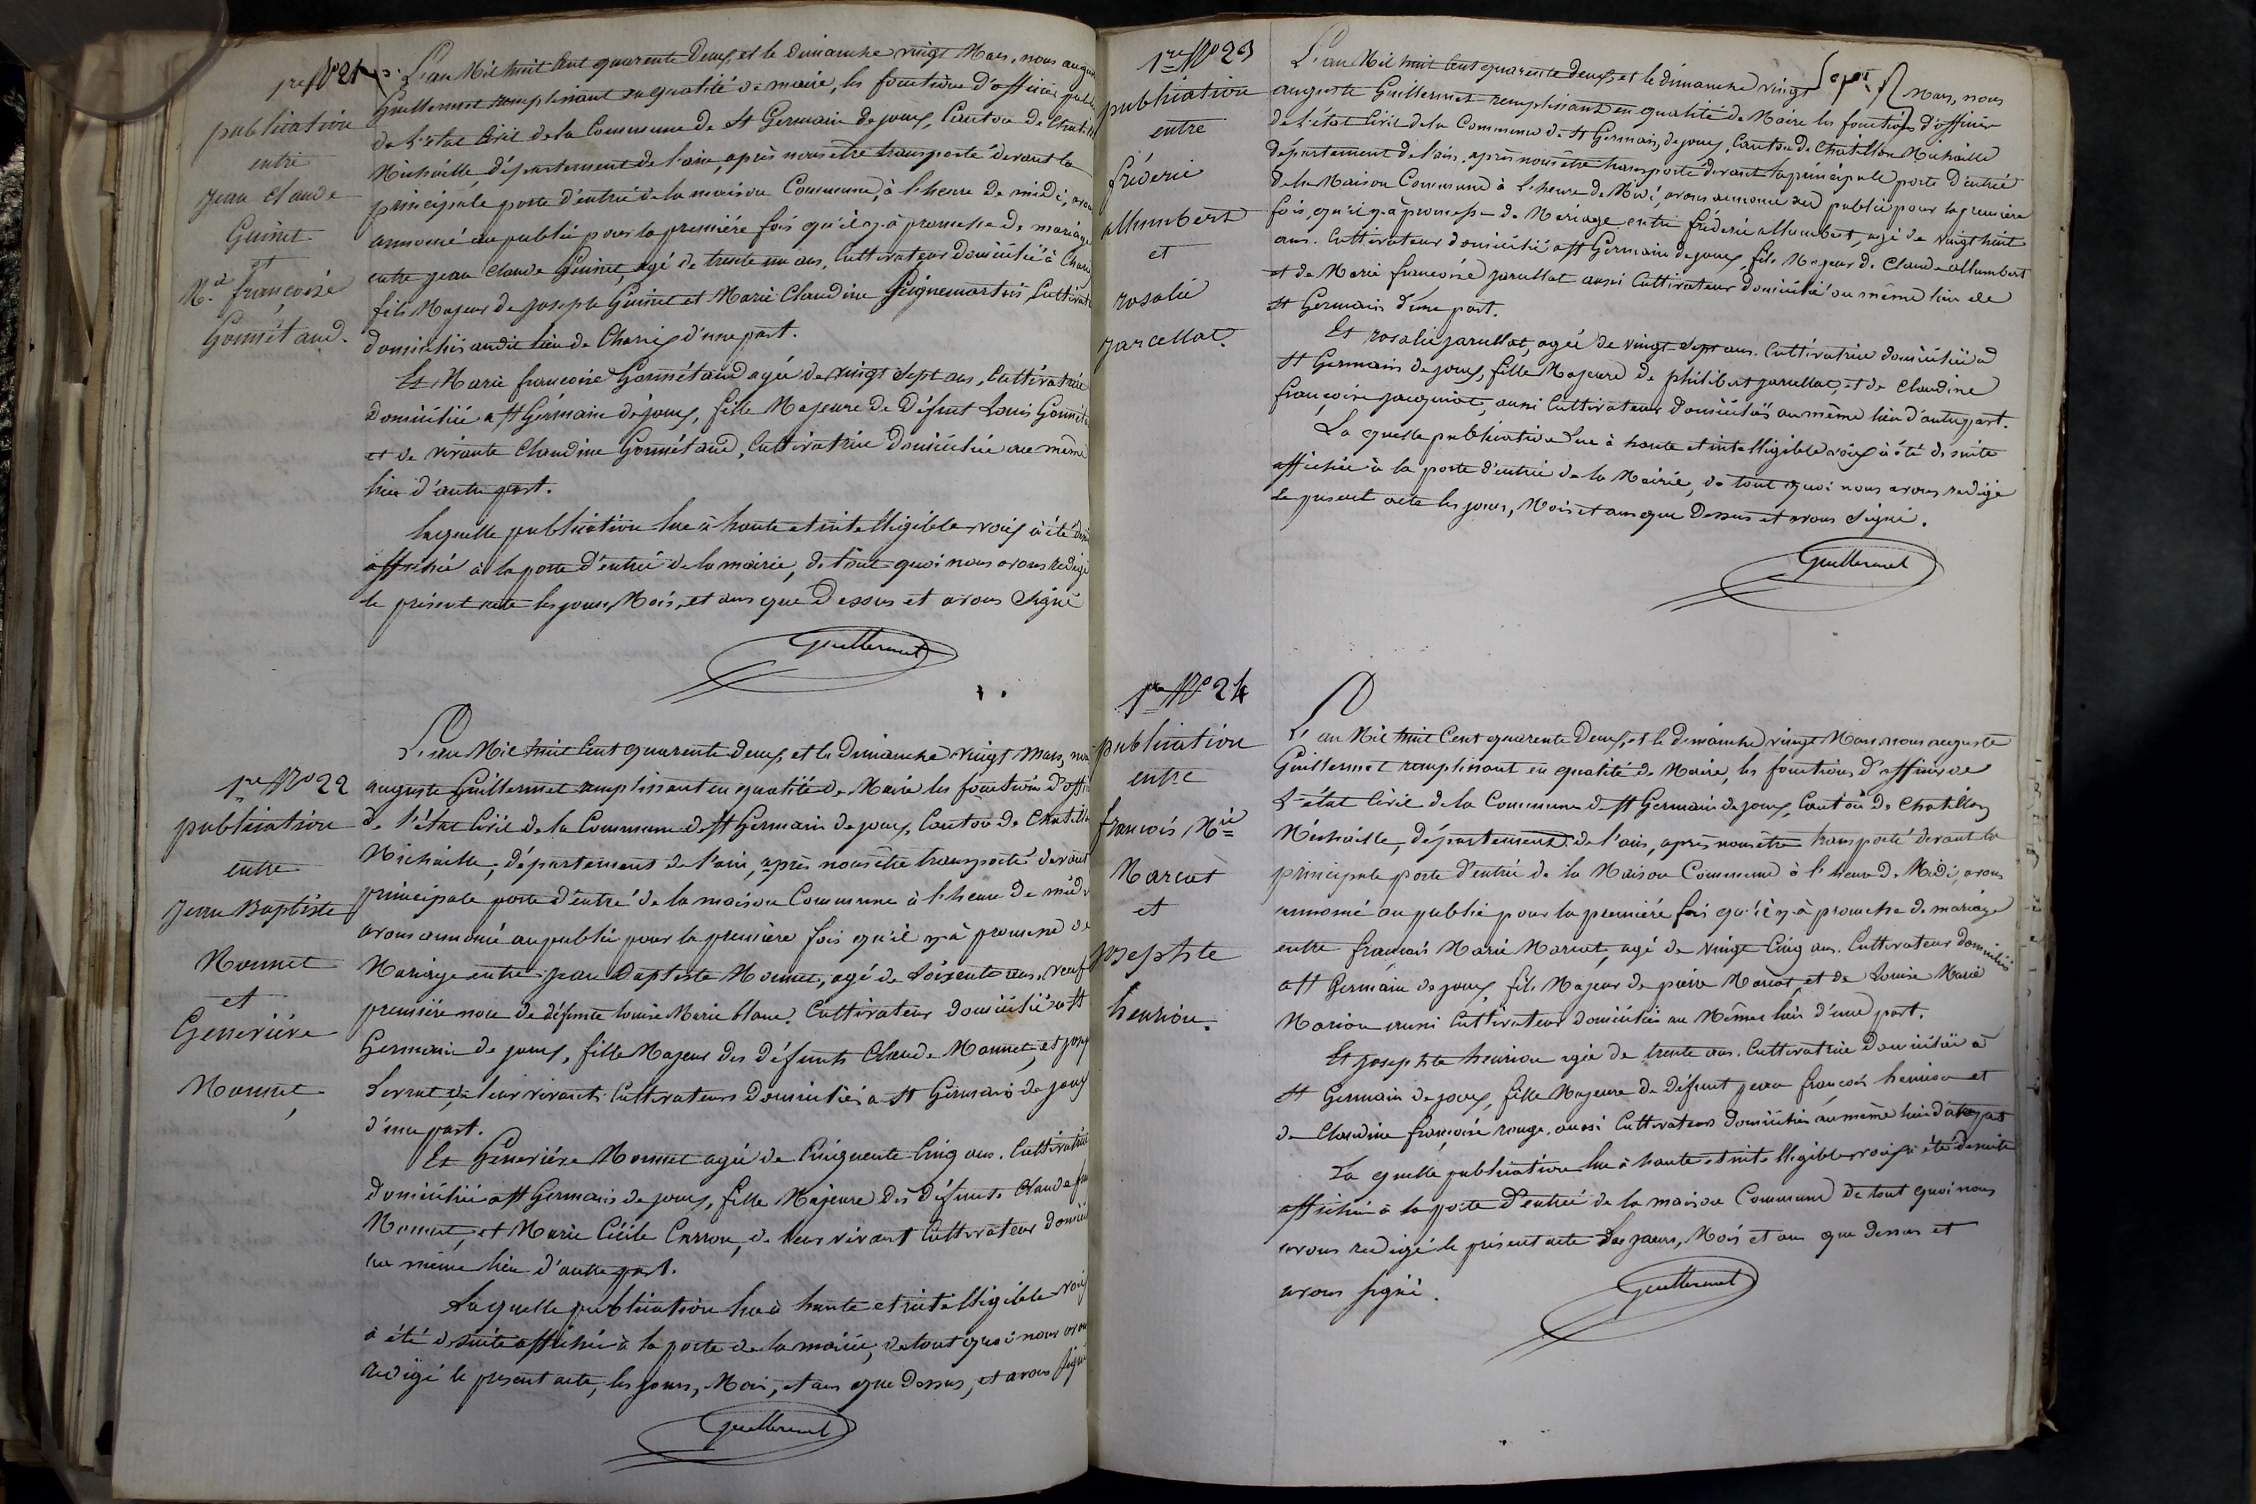 1re No 21
publication
entre
jean claude
Guinet
et
Mie françoise
Gonnétand.
L'an Mil huit Cent quarente Deux, et le dimanche vingt Mars, nous august
Guillermet remplissant en qualité de maire, les fonctions d'officier publi
de l'état Civil de la Commune de St Germain de joux, Canton de Chatill
Michaille, département de l'ain, après nous être transporté devant la
principale porte d'entré de la maison Commune, à l'heure de midi, avon
annoncé au public pour la première fois qu'il y à promesse de mariage
entre jean Claude Guinet, agé de trente un ans, Cultivateur domicilié à
fils Majeur de joseph Guinet et Marie Claudine Seignemartin, Cultivat
domiciliés audit lieu de d'une part.
Et Marie françoise Gonnétand agée de vingt Sept ans, Cultivatrice
domiciliée a St Germain de joux, fille Majeure de Défunt Louis Gonnéta
et de vivante Claudine Gonnétand, Cultivatrice domiciliée au même
lieu d'autre part.
Laquelle publication lue à haute et intelligible voix à été de suit
affichée à la porte d'entrée de la mairie, de tout quoi nous avons redigé
le présent acte les jours, Mois, et ans que Dessus et avons Signé
Guillermet
1re No 22
publication
entre
Jean Baptiste
Monnet
et
Geneviève
Monnet
L'an Mil huit Cent quarente deux, et le Dimanche vingt Mars, nou
auguste Guillermet remplissant en qualité de Maire les fonctions d'offi
de l'état Civil de la Commune de St Germain de joux, Canton de Chatillo
Michaille, département de l'ain, après nous être transporté devant
principale porte d'entré de la maison Commune à l'heure de midi
avons annoncé au public pour la première fois qu'il y à promesse de
Mariage entre jean Baptiste Monnet, agé de Soixente ans, veuf
première noce de défunte louise Marie blanc, Cultivateur domicilié a St
Germain de joux, fille Majeur des défunts Claude Monnet, et
de leur vivants Cultivateurs Domiciliés a St Germain de joux
d'une part.
Et Geneviève Monnet agée de Cinquente Cinq ans, Cultivatrice
domiciliée a St Germain de joux, fille Majeure des défunts Claude
Monnet, et Marie Cécile de leur vivant Cultivateur domicili
au même lieu d'autre part.
Laquelle publication lue à haute et intelligible voix
à été de suite affichée à la porte de la mairie, de tout quoi nous avon
redigé le present acte, les jours, Mois, et ans que Dessus, et avons Signé
Guillermet
1re No 23
publication
entre
fréderic
allumbert
et
rosalie
jarcellat
L'an Mil huit Cent quarente Deux, et le dimanche vingt Sept Mars, nous
auguste Guillermet remplissant en qualité de Maire les fonctions d'officier
de l'état Civil de la Commune de St Germain de joux, Canton de Chatillon Michaille
département de l'ain, après nous être transporté devant la principale porte d'entrée
de la Maison Commune à l'heure de Midi, avons annoncé au public pour la premiere
fois, qu'il y à promesse de Mariage entre fréderic allumbert, agé de vingt huit
ans. Cultivateur domicilié a St Germain de joux, fils Majeur de Claude allumbert
et de Marie françoise jarcellat aussi Cultivateur domicilié au même lieu de
St Germain d'une part.
Et rosalie jarcellat, agée de vingt-Sept ans. Cultivatrice domiciliée a
St Germain de joux, fille Majeure de philibert jarcellat, et de Claudine
françoise jacquinot, aussi Cultivateurs domiciliés au même lieu d'autre part.
La quelle publication lue à haute et intelligible voix à été de suite
affichée à la porte d'entrée de la Mairie, de tout quoi nous avons redigé
le present acte les jours, Mois et ans que Dessus et avons Signé.
Guillermet
1re No 24
publication
entre
françois, Mie
Marcat
et
josephte
henriou.
L'an Mil huit Cent quarente Deux, et le Dimanche vingt Mars, nous auguste
Guillermet remplissant en qualité de Maire, les fonctions d'officier de
L'état Civil de la Commune de St Germain de joux, Canton de Chatillon
Michaille, département de l'ain, après nous être transporté devant la
principale porte d'entrée de la Maison Commune à l'heure de Midi, avons
annoncé au public pour la première fois qu'il y à promesse de mariage
entre françois Marie Marcat, agé de vingt Cinq ans. Cultivateur domicilié
a St Germain de joux, fils Majeur de pierre Marcat, et de Louise Marie
Mariou aussi Cultivateur domiciliés au Même lieu d'une part.
Et josephte henriou agée de trente ans. Cultivatrice Domiciliée à
St Germain de joux, fille Majeure de Défunt jean françois henriou et
de Claudine françoise rouge, aussi Cultivateurs Domiciliés au même lieu d'autre part
La quelle publication lue à haute et intelligible voix a été de suite
affichée à la porte d'entrée de la maison Commune de tout quoi nous
avons redigé le présent acte Les jours, Mois et ans que dessus et
avons signé.
Guillermet